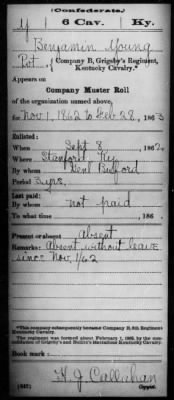 (Confederate.)
Y 6 Cav. Ky.
Benjamin Young
Pvt., Company B, Grigsby's Regiment,
Kentucky Cavalry.*
Appears on
Company Muster Roll
of the organization named above,
for Nov 1, 1862 to Feb 28, 1863
Enlisted:
When Sept 8, 1862.
Where Stanford Ky.
By whom Genl Buford
Period 3 yrs.
Last paid:
By whom not paid
To what time , 186 .
Present or absent Absent
Remarks: Absent without leave
since Nov. 1/62
*This company subsequently became Company B, 6th Regiment
Kentucky Cavalry.
The regiment was formed about February 1, 1863, by the
of Grigsby's and Battalions Kentucky Cavalry.
Book mark:
H. J. Callahan
(642) Copyist.